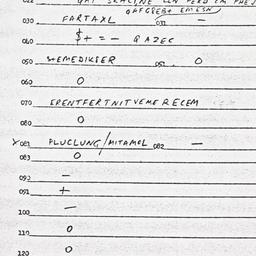 030 FARTAXL 031 —
040 $+ = — GAZEC
050 HEMEDIKSER 051 O
060 O
070 ERENTFERTNITVEMERECEM
080 O
X081 PLUCLUNG/MITAMOL 082 —
083 O
090 —
091 +
100 —
110 O
120 O